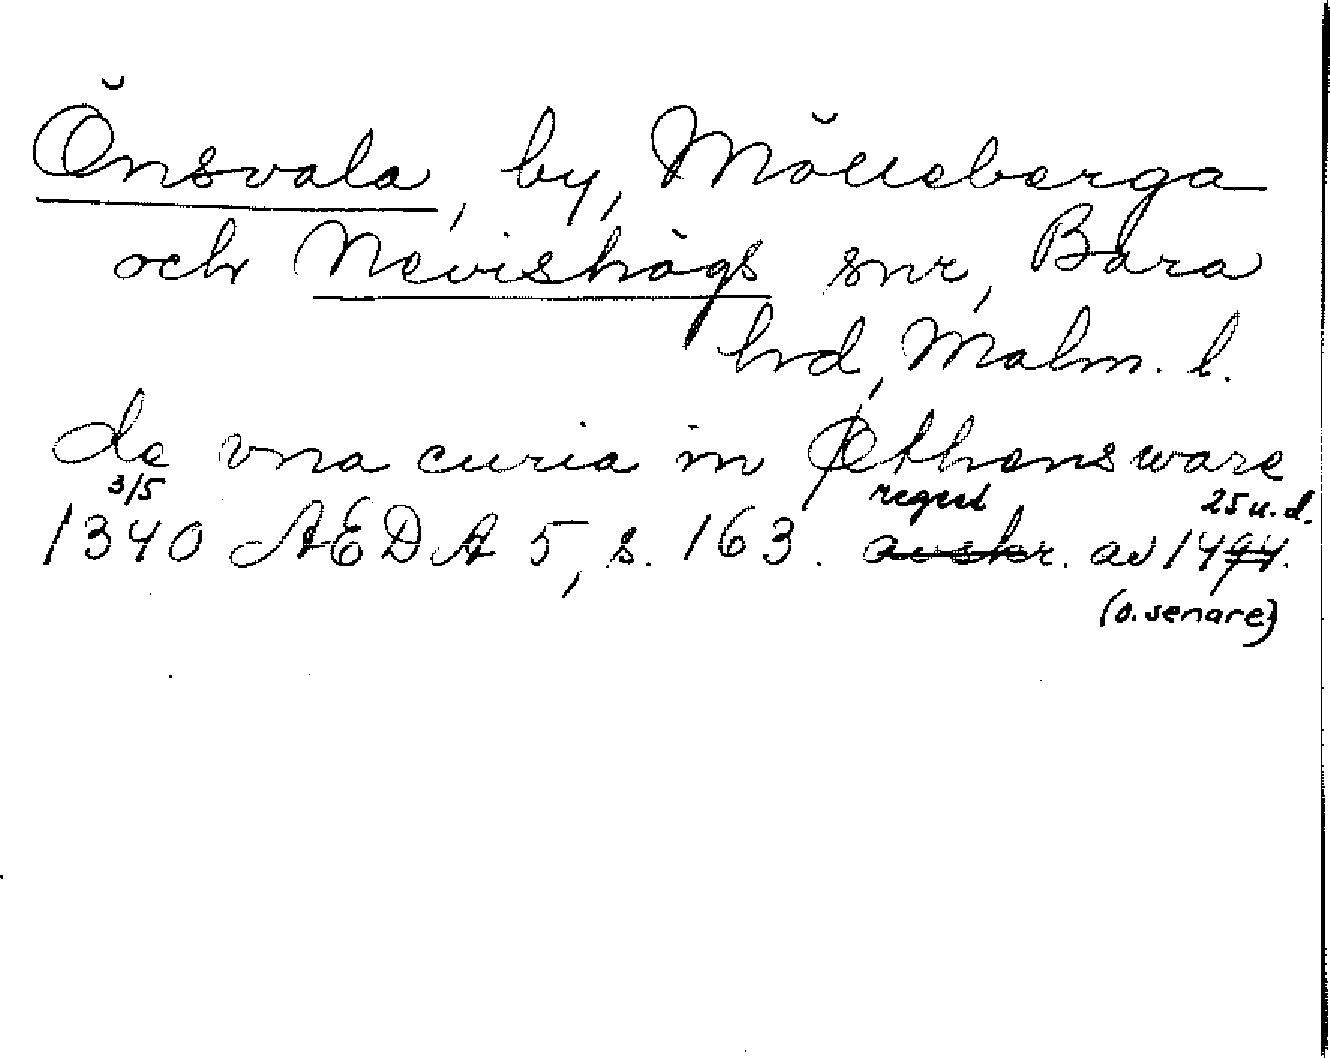 Önsvala, by, Mölleberga
och Nevishögs snr, Bara
hrd, Malm. l.
de vna curia in Øthensware
3/5 regest 25 u.d.
1340 ÆDA 5, s. 163. avskr. av 1494.
(o. senare)